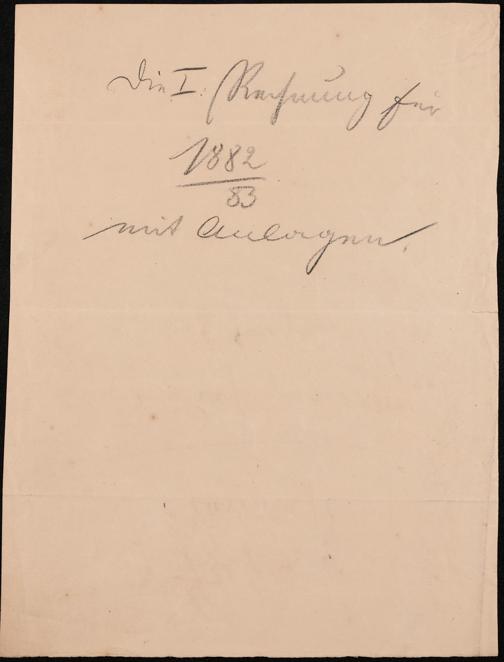 Die I. Rechnung für
1882
83
mit Anlagen.